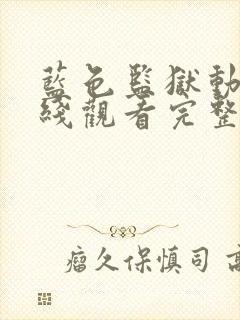 藍色監獄動
綫觀看完整
瘤久保慎司 高